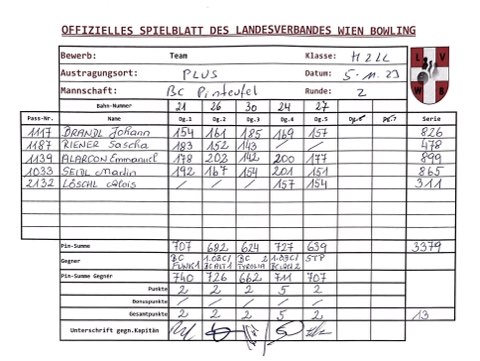 OFFIZIELLES SPIELBLATT DES LANDESVERBANDES WIEN BOWLING
Bewerb: Team Klasse: H2LL
Austragungsort: PLUS Datum: 5.11.23
Mannschaft: BC Pinteufel Runde: 2
L V
W B
Bahn-Nummer 21 26 30 24 27
Pass-Nr. Name Dg.1 Dg.2 Dg.3 Dg.4 Dg.5 Dg.6 Dg.7 Serie
1117 BRANDL Johann 154 161 185 169 157 826
1187 RIENER Sascha 183 152 143 / / 478
1139 ALARCON Emmanuel 178 202 142 200 177 899
1033 SEIDL Martin 192 167 154 201 151 865
2132 LÖSCHL / / / 157 154 311
Pin-Summe 707 682 624 727 639 3379
Gegner BC 1.ÖBC/ BC 2 1.ÖBC/ STP
Pin-Summe Gegner 740 726 662 711 707
Punkte 2 2 2 5 2
Bonuspunkte / / / / /
Gesamtpunkte 2 2 2 5 2 13
Unterschrift gegn.Kapitän